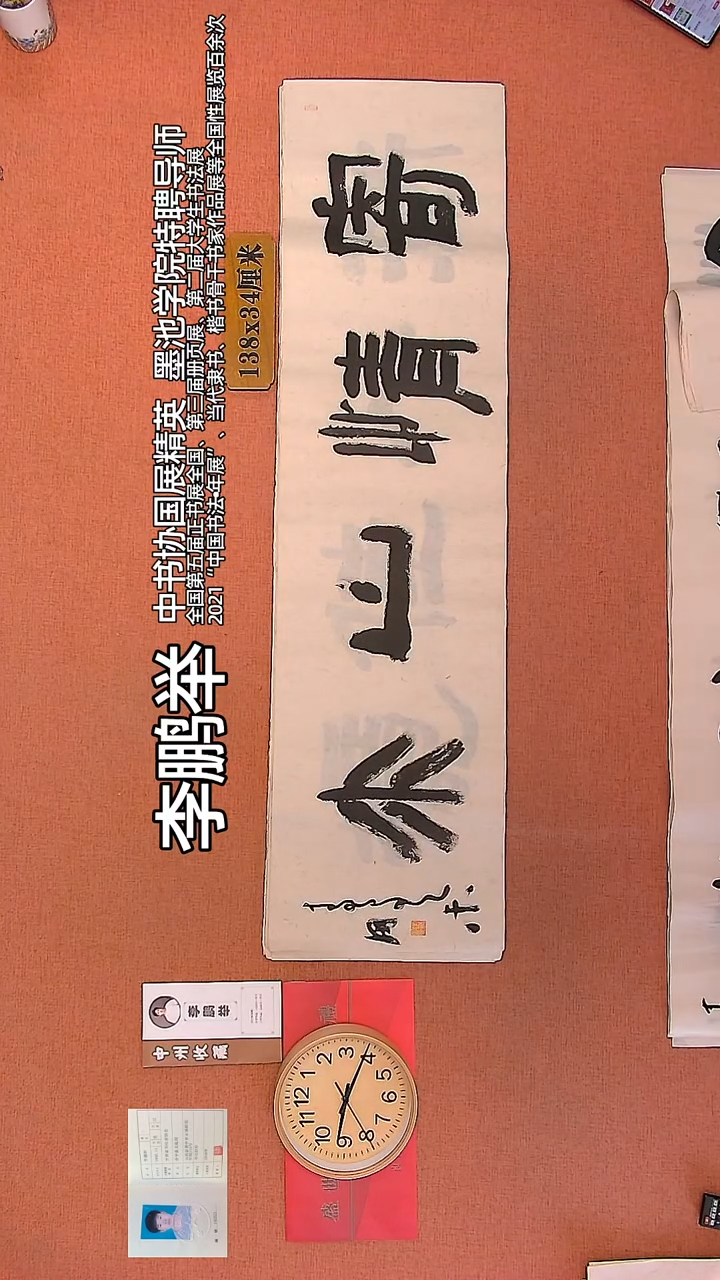 李鹏举
中书协国展精英 墨池学院特聘导师
全国第五届正书展全国、第三届册页展、第二届大学生书法展
2021“中国书法·年展”、当代隶书、楷书骨干书家作品展等全国性展览百余次
138x34厘米
寄情山水
李鹏举
中州收藏
12
1
2
3
4
5
6
7
8
9
10
11
盛世